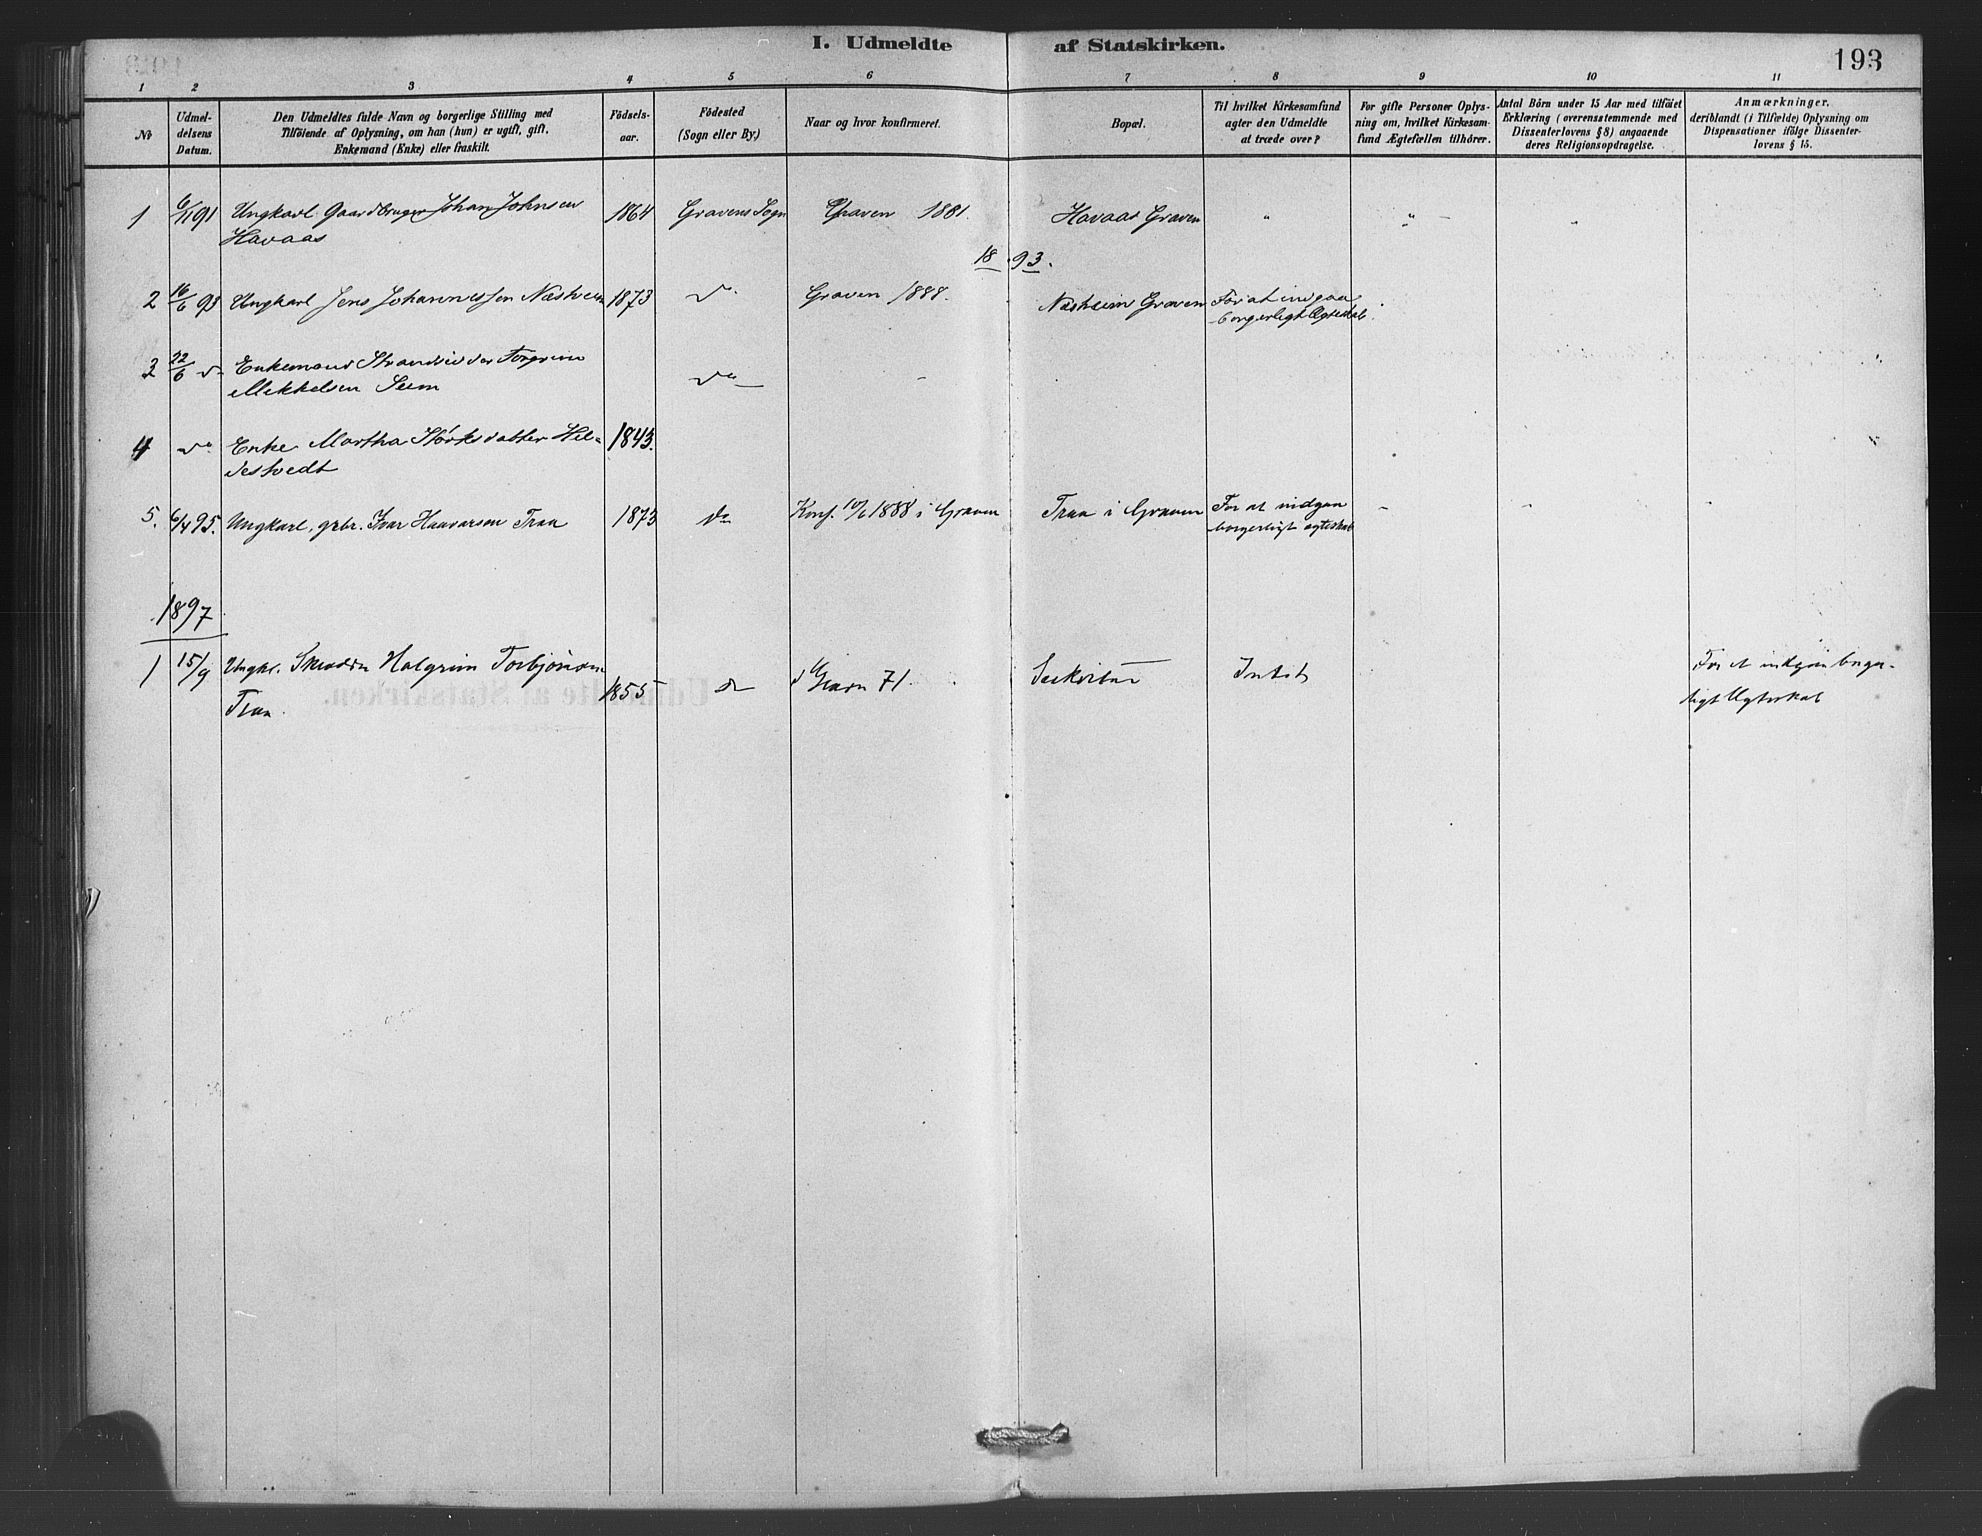 I. Udmeldte af Statskirken.
193
1 2 3 4 5 6 7 8 9 10 11
No
Udmel-
delsens
Datum.
Den Udmeldtes fulde Navn og borgerlige Stilling med
Tilføiende af Oplysning, om han (hun) er ugift, gift,
Enkemand (Enke) eller fraskilt.
Fødsels-
aar.
Fødested
(Sogn eller By.)
Naar og hvor konfirmeret.
Bopæl.
Til hvilket Kirkesamfund
agter den Udmeldte
at træde over?
For gifte Personer Oplys-
ning om, hvilket Kirkesam-
fund Ægtefællen tilhører.
Antal Børn under 15 Aar med tilføiet
Erklæring (overensstemmende med
Dissenterlovens § 8) angaaende
deres Religionsopdragelse.
Anmærkninger,
deriblandt (i Tilfælde) Oplysning om
Dispensationer ifølge Dissenter-
lovens § 15.
1 6/11 91 Ungkarl Gaardbruger Johan Johnsen 1864 Gravens Sogn Graven 1881. Havaas Graven " " "
Havaas
1893.
2 16/6 93 Ungkarl Jens Johannessen Næsheim 1873 do Graven 1888. Næsheim Graven For at indgaa
borgerligt Ægteskab.
3 22/6 do Enkemand Strandsidder Torgrim do -
Mikkelsen Seim
4 do Enke Martha Størksdatter Hil- 1843.
destvedt
5. 6/4 95. Ungkarl, grbr. Ivar Haavarsen Traa 1873 do Konf. 10/6 1888 i Graven Traa i Graven For at indgaa - - -
borgerligt ægteskab
1897
1 15/9 Ungk. Halgrim Torbjørnsen 1855 do Graven 71. For at indgaa borger-
Traa ligt Ægteskab